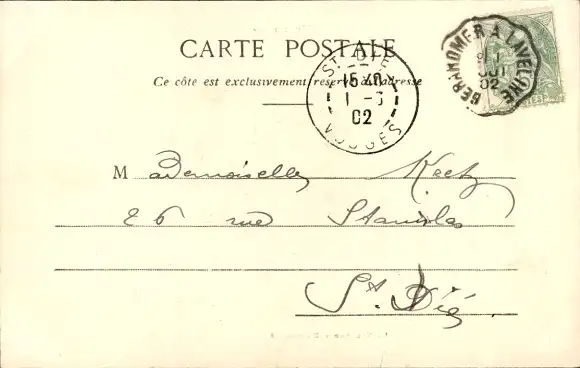 CARTE POSTALE
Ce côté est exclusivement réservé à l'adresse
GERARDMER A LAVELINE
1
02
ST DIE
15 40
1 - 02
VOSGES
Mademoiselle
26 rue Stanislas
St. Dié